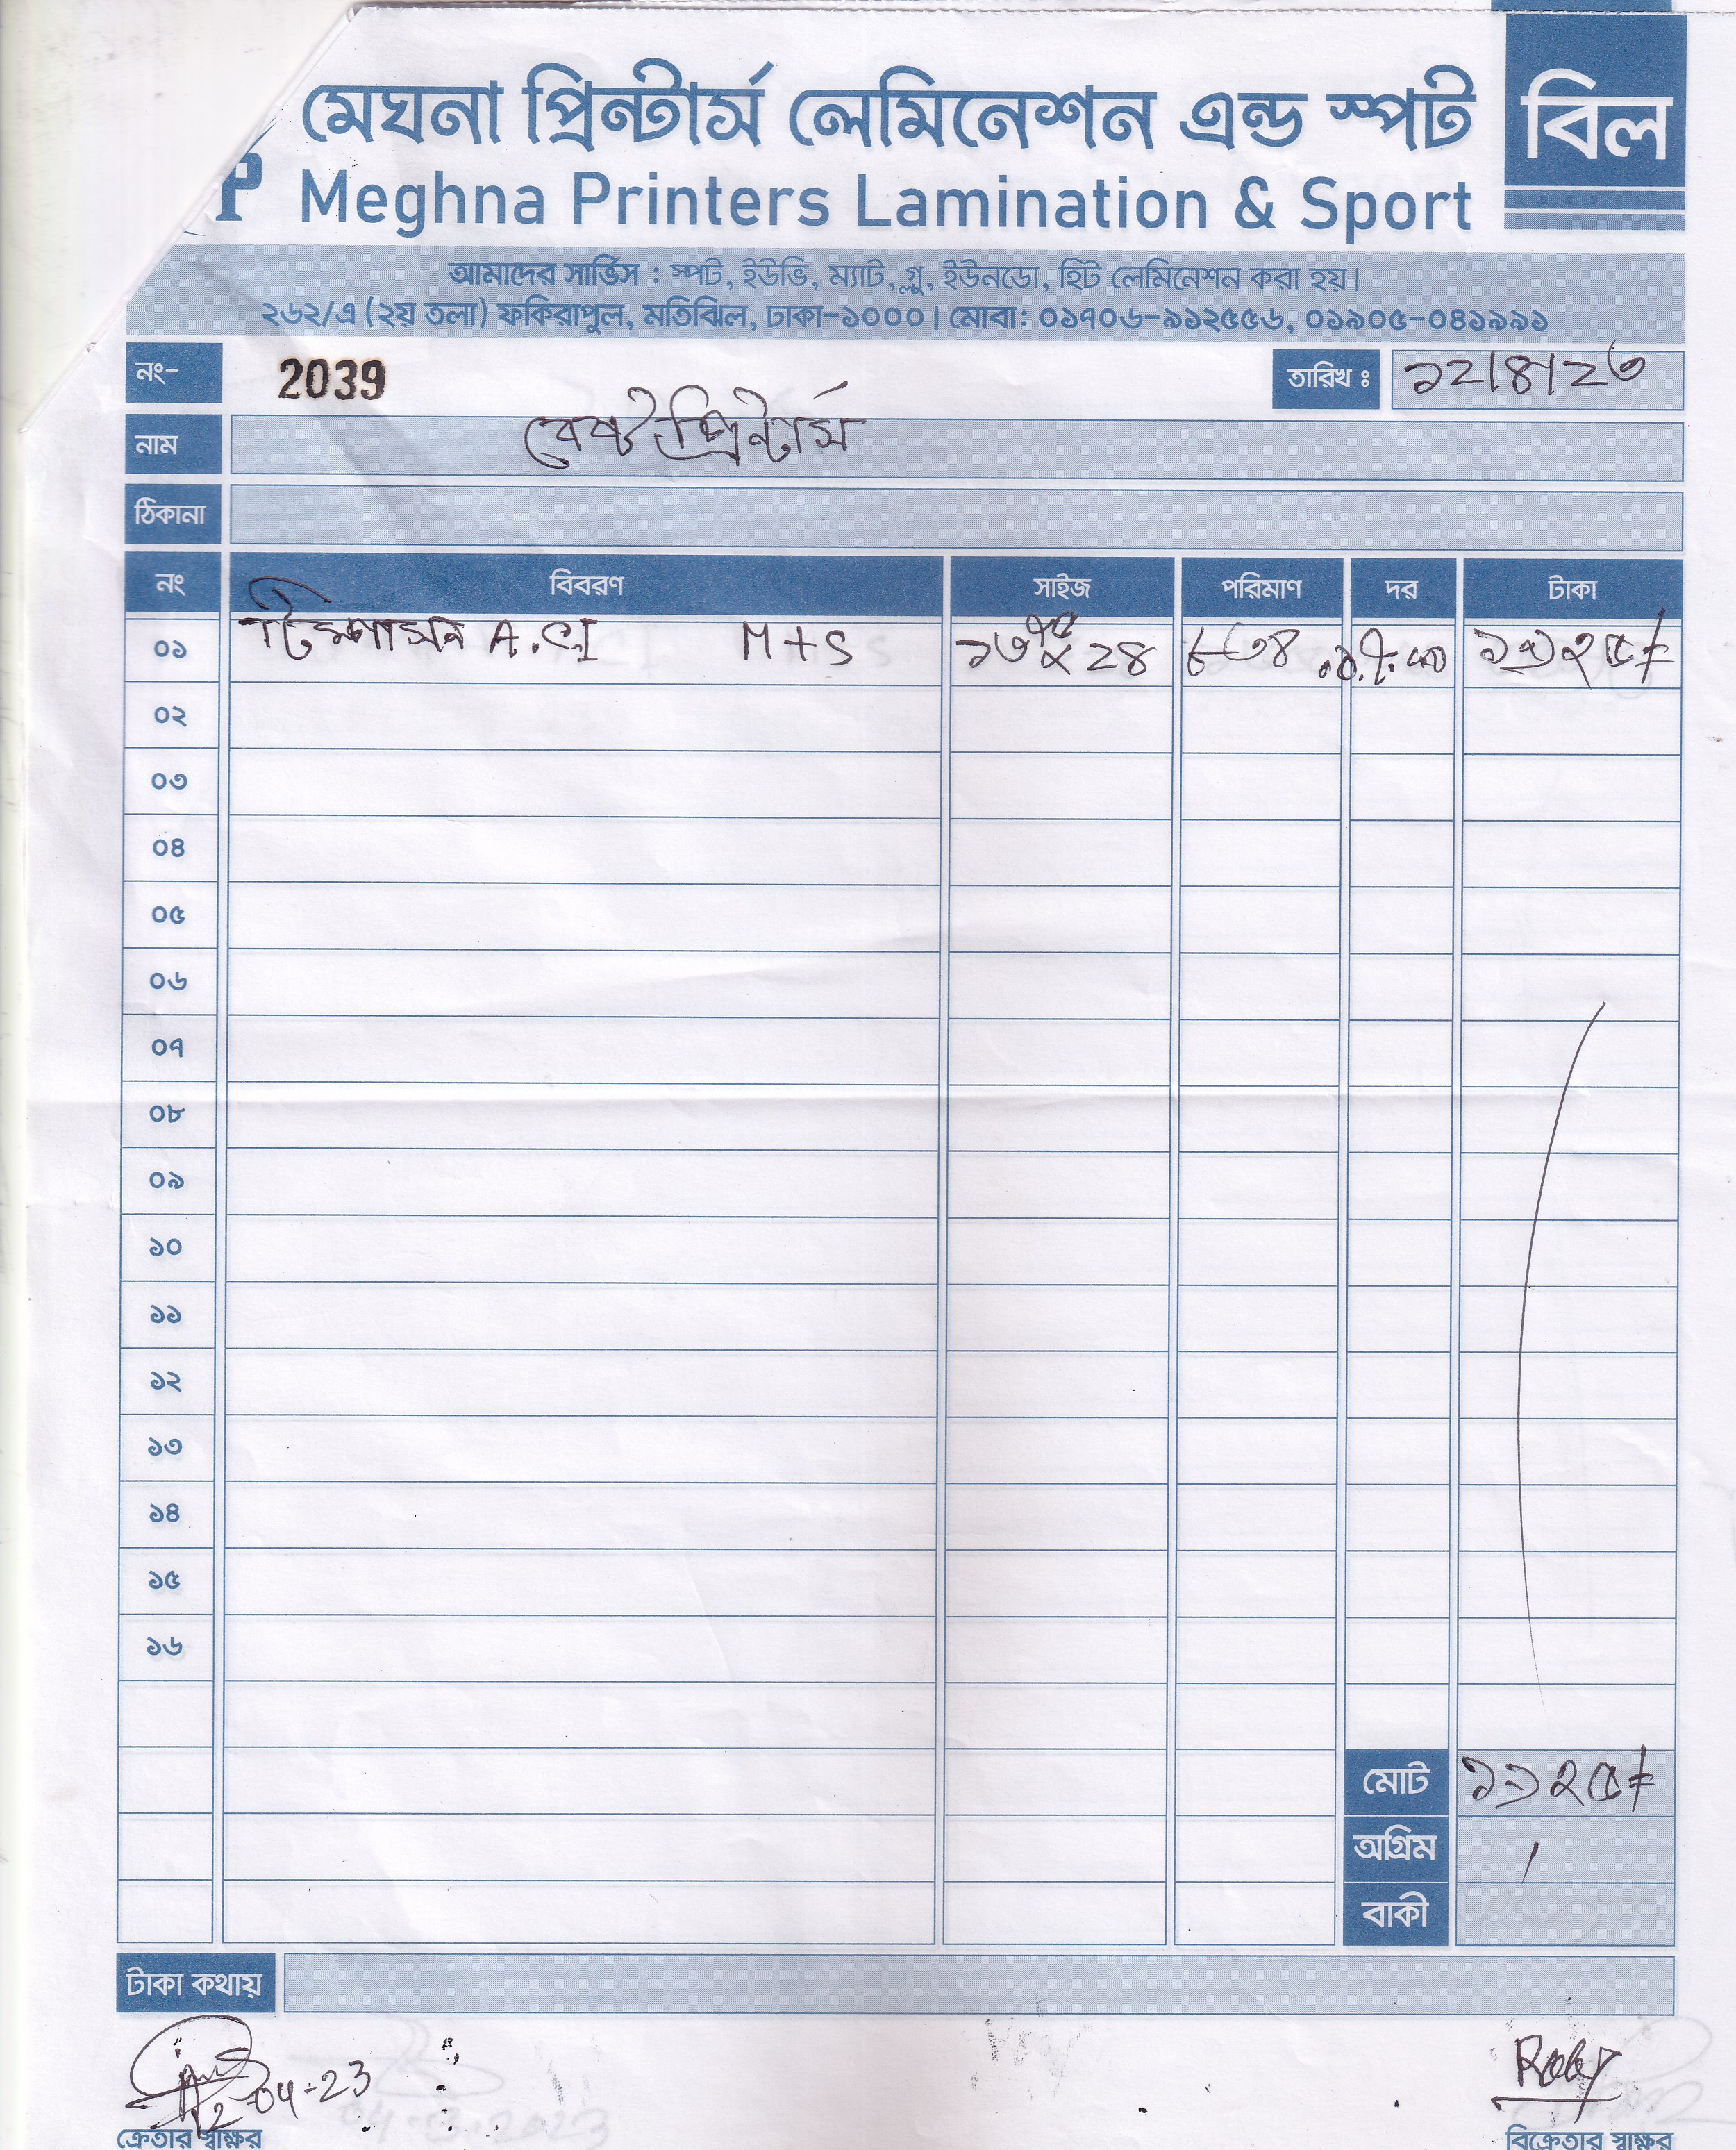 মেঘনা প্রিন্টার্স লেমিনেশন এন্ড স্পট
বিল
Meghna Printers Lamination & Sport
আমাদের সার্ভিস : স্পট, ইউভি, ম্যাট, গ্লু, ইউনডো, হিট লেমিনেশন করা হয়।
২৬২/এ (২য় তলা) ফকিরাপুল, মতিঝিল, ঢাকা-১০০০। মোবা: ০১৭০৬-৯১২৫৫৬, ০১৯০৫-০৪১৯৯১
নং- 2039 তারিখ ঃ ১২/৪/২৩
নাম বেষ্ট প্রিন্টার্স
ঠিকানা
নং বিবরণ সাইজ পরিমাণ দর টাকা
০১ A.C.I M+S ২৪ ৮৩৪ ১১২৫/=
০২
০৩
০৪
০৫
০৬
০৭
০৮
০৯
১০
১১
১২
১৩
১৪
১৫
১৬
মোট ১১২৫/=
অগ্রিম
বাকী
টাকা কথায়
12-04-23
Roby
ক্রেতার স্বাক্ষর বিক্রেতার স্বাক্ষর